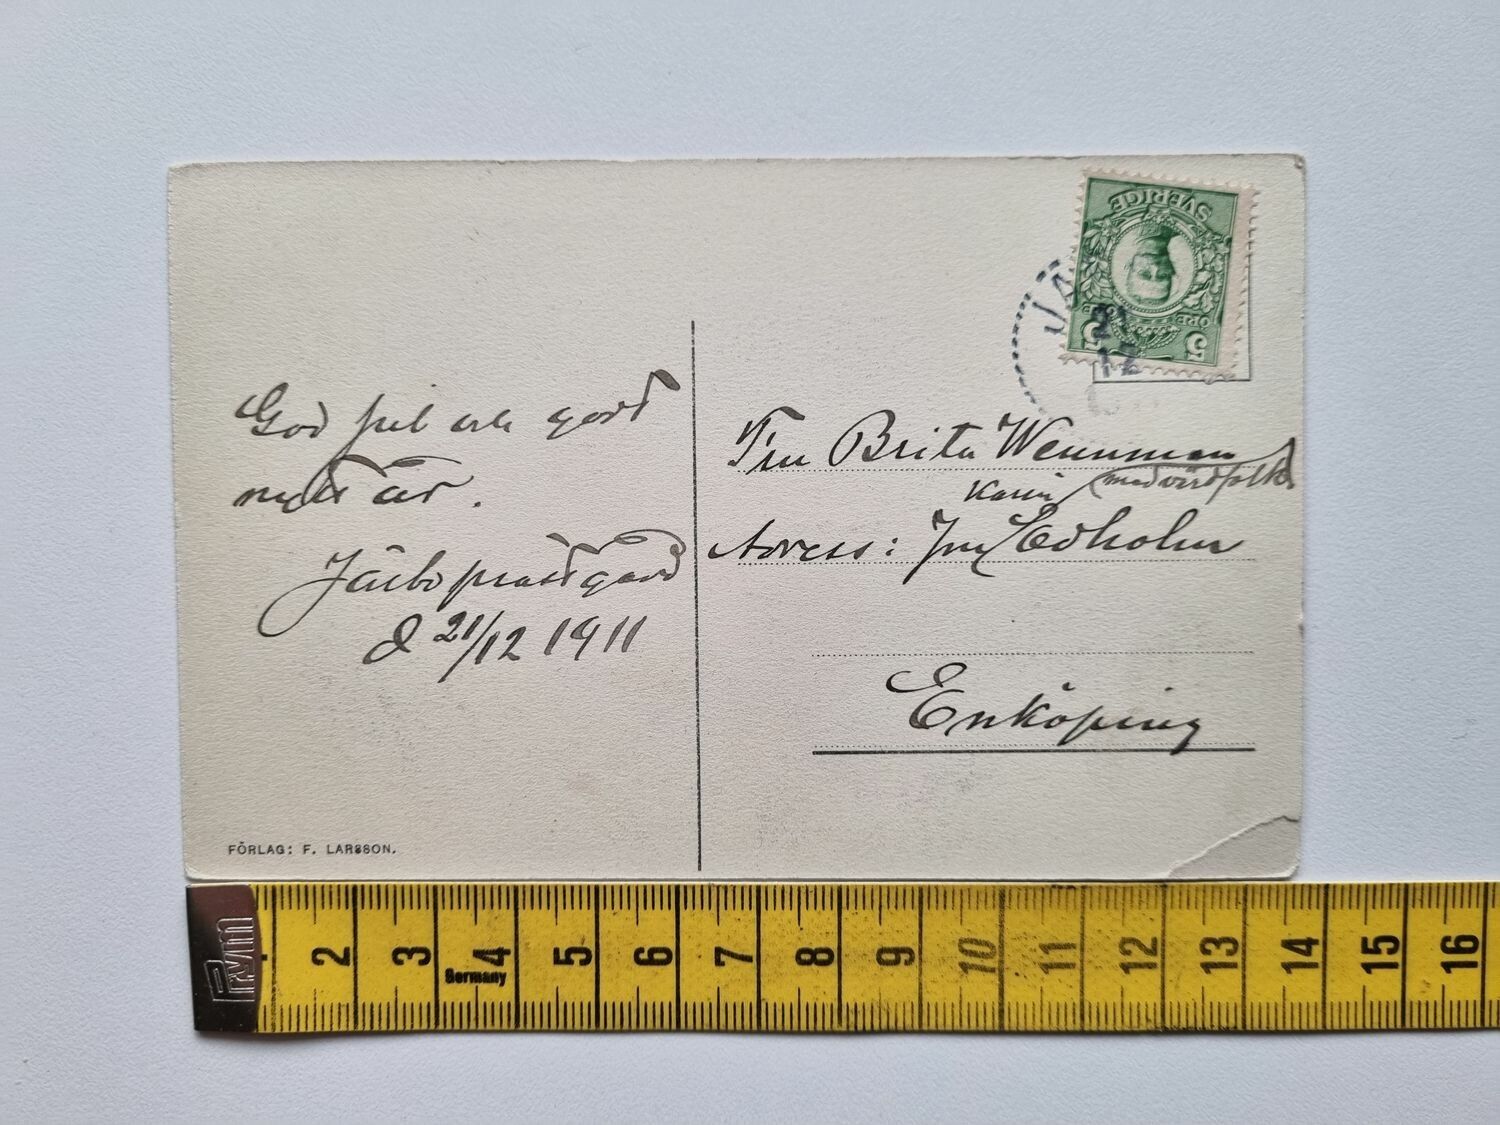 God jul och godt
nytt år.
Järbo prästgård
d 21/12 1911
FÖRLAG: F. LARSSON.
SVERIGE
5 ÖRE 5
JÄ
21
12
Frn Brita Wennman
Karin med värdfolk
Adress: Fru Edholm
Enköping
PYM
2 3 4 5 6 7 8 9 10 11 12 13 14 15 16
Germany